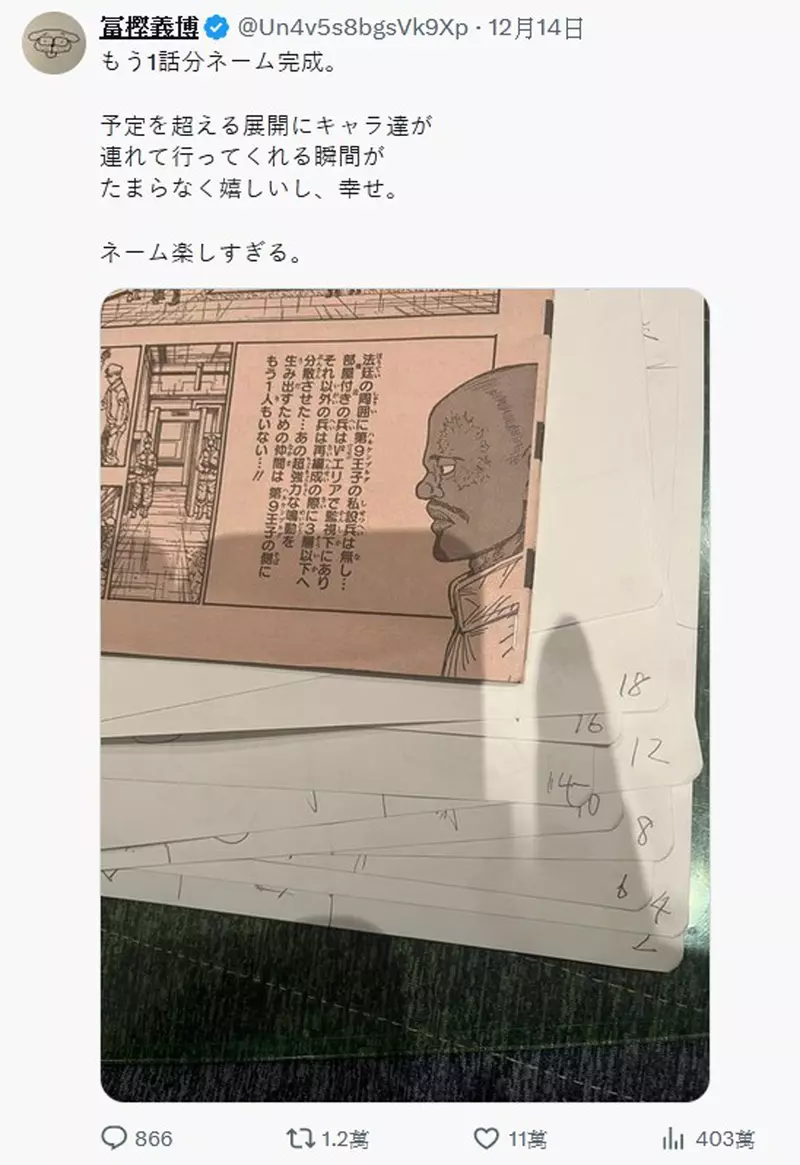 冨樫義博 @Un4v5s8bgsVk9Xp · 12月14日
もう1話分ネーム完成。
予定を超える展開にキャラ達が
連れて行ってくれる瞬間が
たまらなく嬉しいし、幸せ。
ネーム楽しすぎる。
法廷の周囲に第9王子の私設兵は無し…
部屋付きの兵はVIPエリアで監視下にあり
それ以外の兵は再編成の際に3層以下へ
分散させた…あの超強力な鳴動を
生み出すための仲間は第9王子の側に
もう1人もいない…!!
18
16
12
14
10
8
6
4
2
866 1.2萬 11萬 403萬